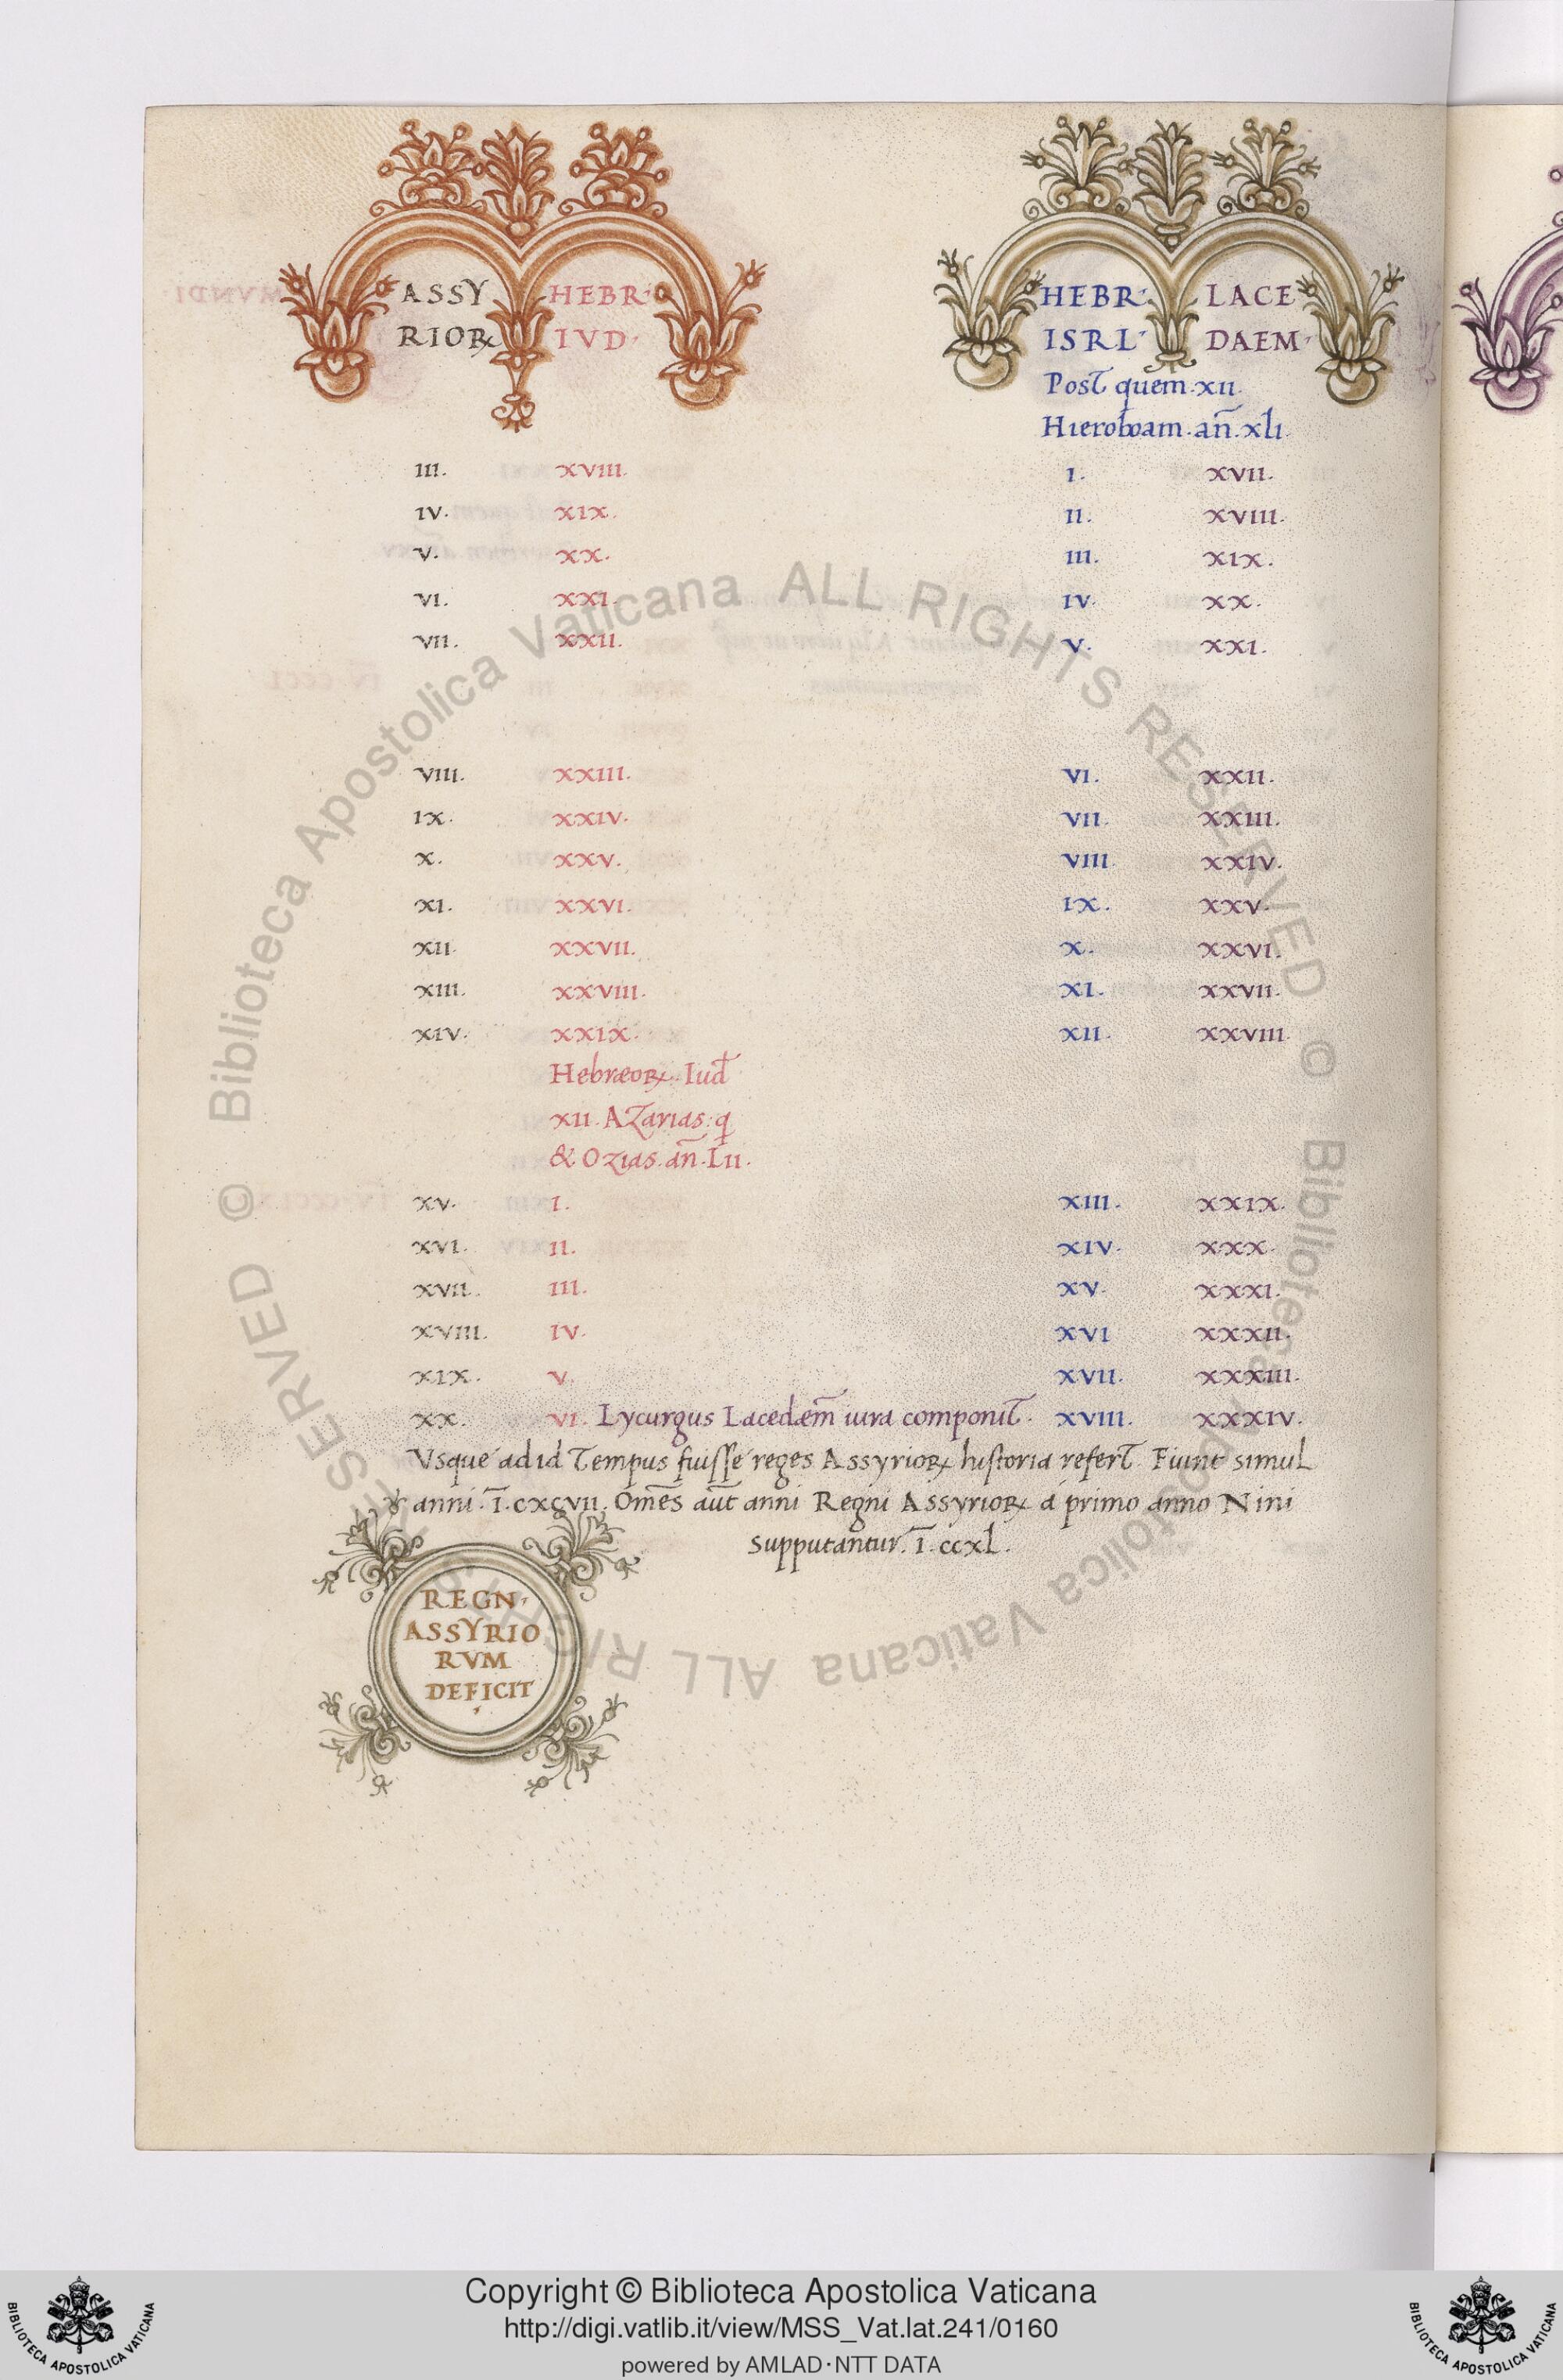 ASSY HEBR· HEBR· LACE
RIOꝜ IVD· ISRL· DAEM·
Post quem·xii
Hieroboam·an̄·xli·
III. XVIII. I. XVII.
IV. XIX. II. XVIII.
V. XX. III. XIX.
VI. XXI. IV. XX.
VII. XXII. V. XXI.
VIII. XXIII. VI. XXII.
IX. XXIV. VII. XXIII.
X. XXV. VIII XXIV.
XI. XXVI. IX. XXV.
XII. XXVII. X. XXVI.
XIII. XXVIII. XI. XXVII.
XIV. XXIX. XII. XXVIII.
HebræoꝜ. Iud
xii. AZarias. q
& Ozias. an̄. Lii.
XV. I. XIII. XXIX.
XVI. II. XIV. XXX.
XVII. III. XV. XXXI.
XVIII. IV. XVI XXXII.
XIX. V. XVII. XXXIII.
XX. VI. Lycurgus Lacedæm̄ iura componit. XVIII. XXXIV.
Vsque ad id Tempus fuisse reges AssyrioꝜ historia refert. Fiunt simul
anni. ī. cxcvii. Om̄es aut̄ anni Regni AssyrioꝜ a primo anno Nini
supputantur. ī. ccxl.
REGN·
ASSYRIO
RVM
DEFICIT
© Biblioteca Apostolica Vaticana ALL RIGHTS RESERVED © Biblioteca Apostolica Vaticana ALL RIGHTS RESERVED
Copyright © Biblioteca Apostolica Vaticana
http://digi.vatlib.it/view/MSS_Vat.lat.241/0160
powered by AMLAD·NTT DATA
BIBLIOTECA APOSTOLICA VATICANA
BIBLIOTECA APOSTOLICA VATICANA